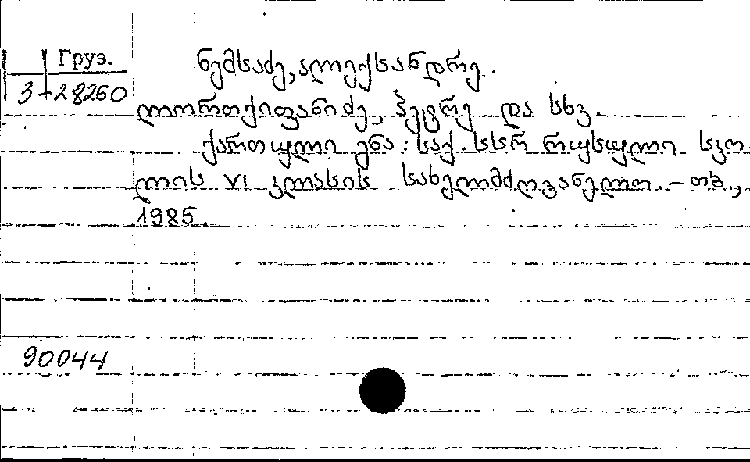 Груз.
3-28260
ნემსაძე, ალექსანდრე.
ლორთქიფანიძე, პეტრე და სხვ.
ქართული ენა : საქ. სსრ რუსული სკო
ლის VI კლასის სახელმძღვანელო. - თბ.,
1985.
90044